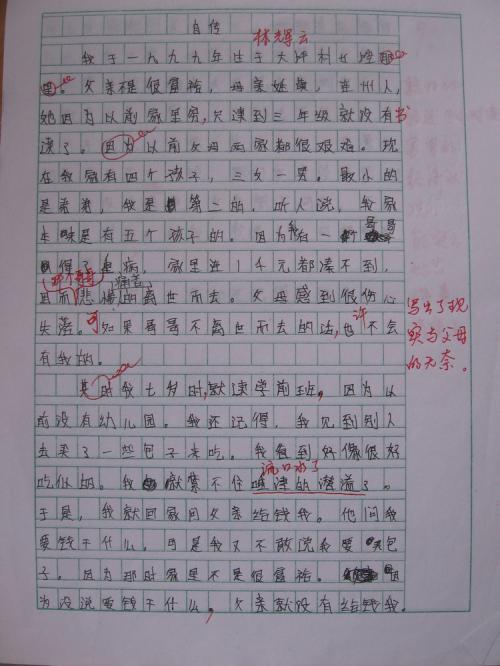 自传
林辉云
我于一九九九年生于大坪村
里。父亲不是很富裕，母亲姓黄，连州人，
她因为以前家里穷，只读到三年级就没有书
读了。因为以前父母两家都很艰难。现
在我家有四个孩子，三女一男。最小的
是弟弟，我是第二的。听人说，我家
本来是有五个孩子的。因为我有一个哥哥
得了重病，家里连1千元都凑不到，
那个哥哥
因而悲惨的离世而去。父母感到很伤心
失落。可如果哥哥不离世而去的话，也许不会
有我的。
写出了现实与父母的无奈。
时我七岁时，就读学前班。因为以
前没有幼儿园。我还记得，我见到别人
去买了一些包子来吃。我看到好像很好
吃似的。我就禁不住的满溢了。
流口水了
于是，我就回家问父亲给钱我。他问我
要钱干什么。可是我又不敢说我要买包
子。因为那时家里不是很富裕。因
为没说要钱干什么，父亲就没有给钱我。